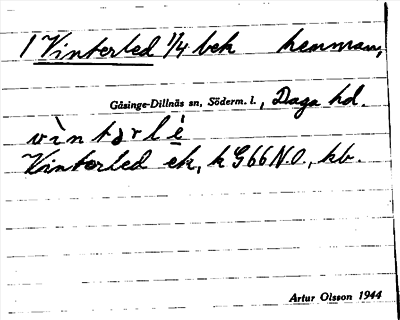 1 Vinterled 1/4 bek hemman,
Gåsinge-Dillnäs sn, Söderm. l., Daga hd.
vìntərlè
Vinterled ek, k G66 N.O., kb.
Artur Olsson 1944